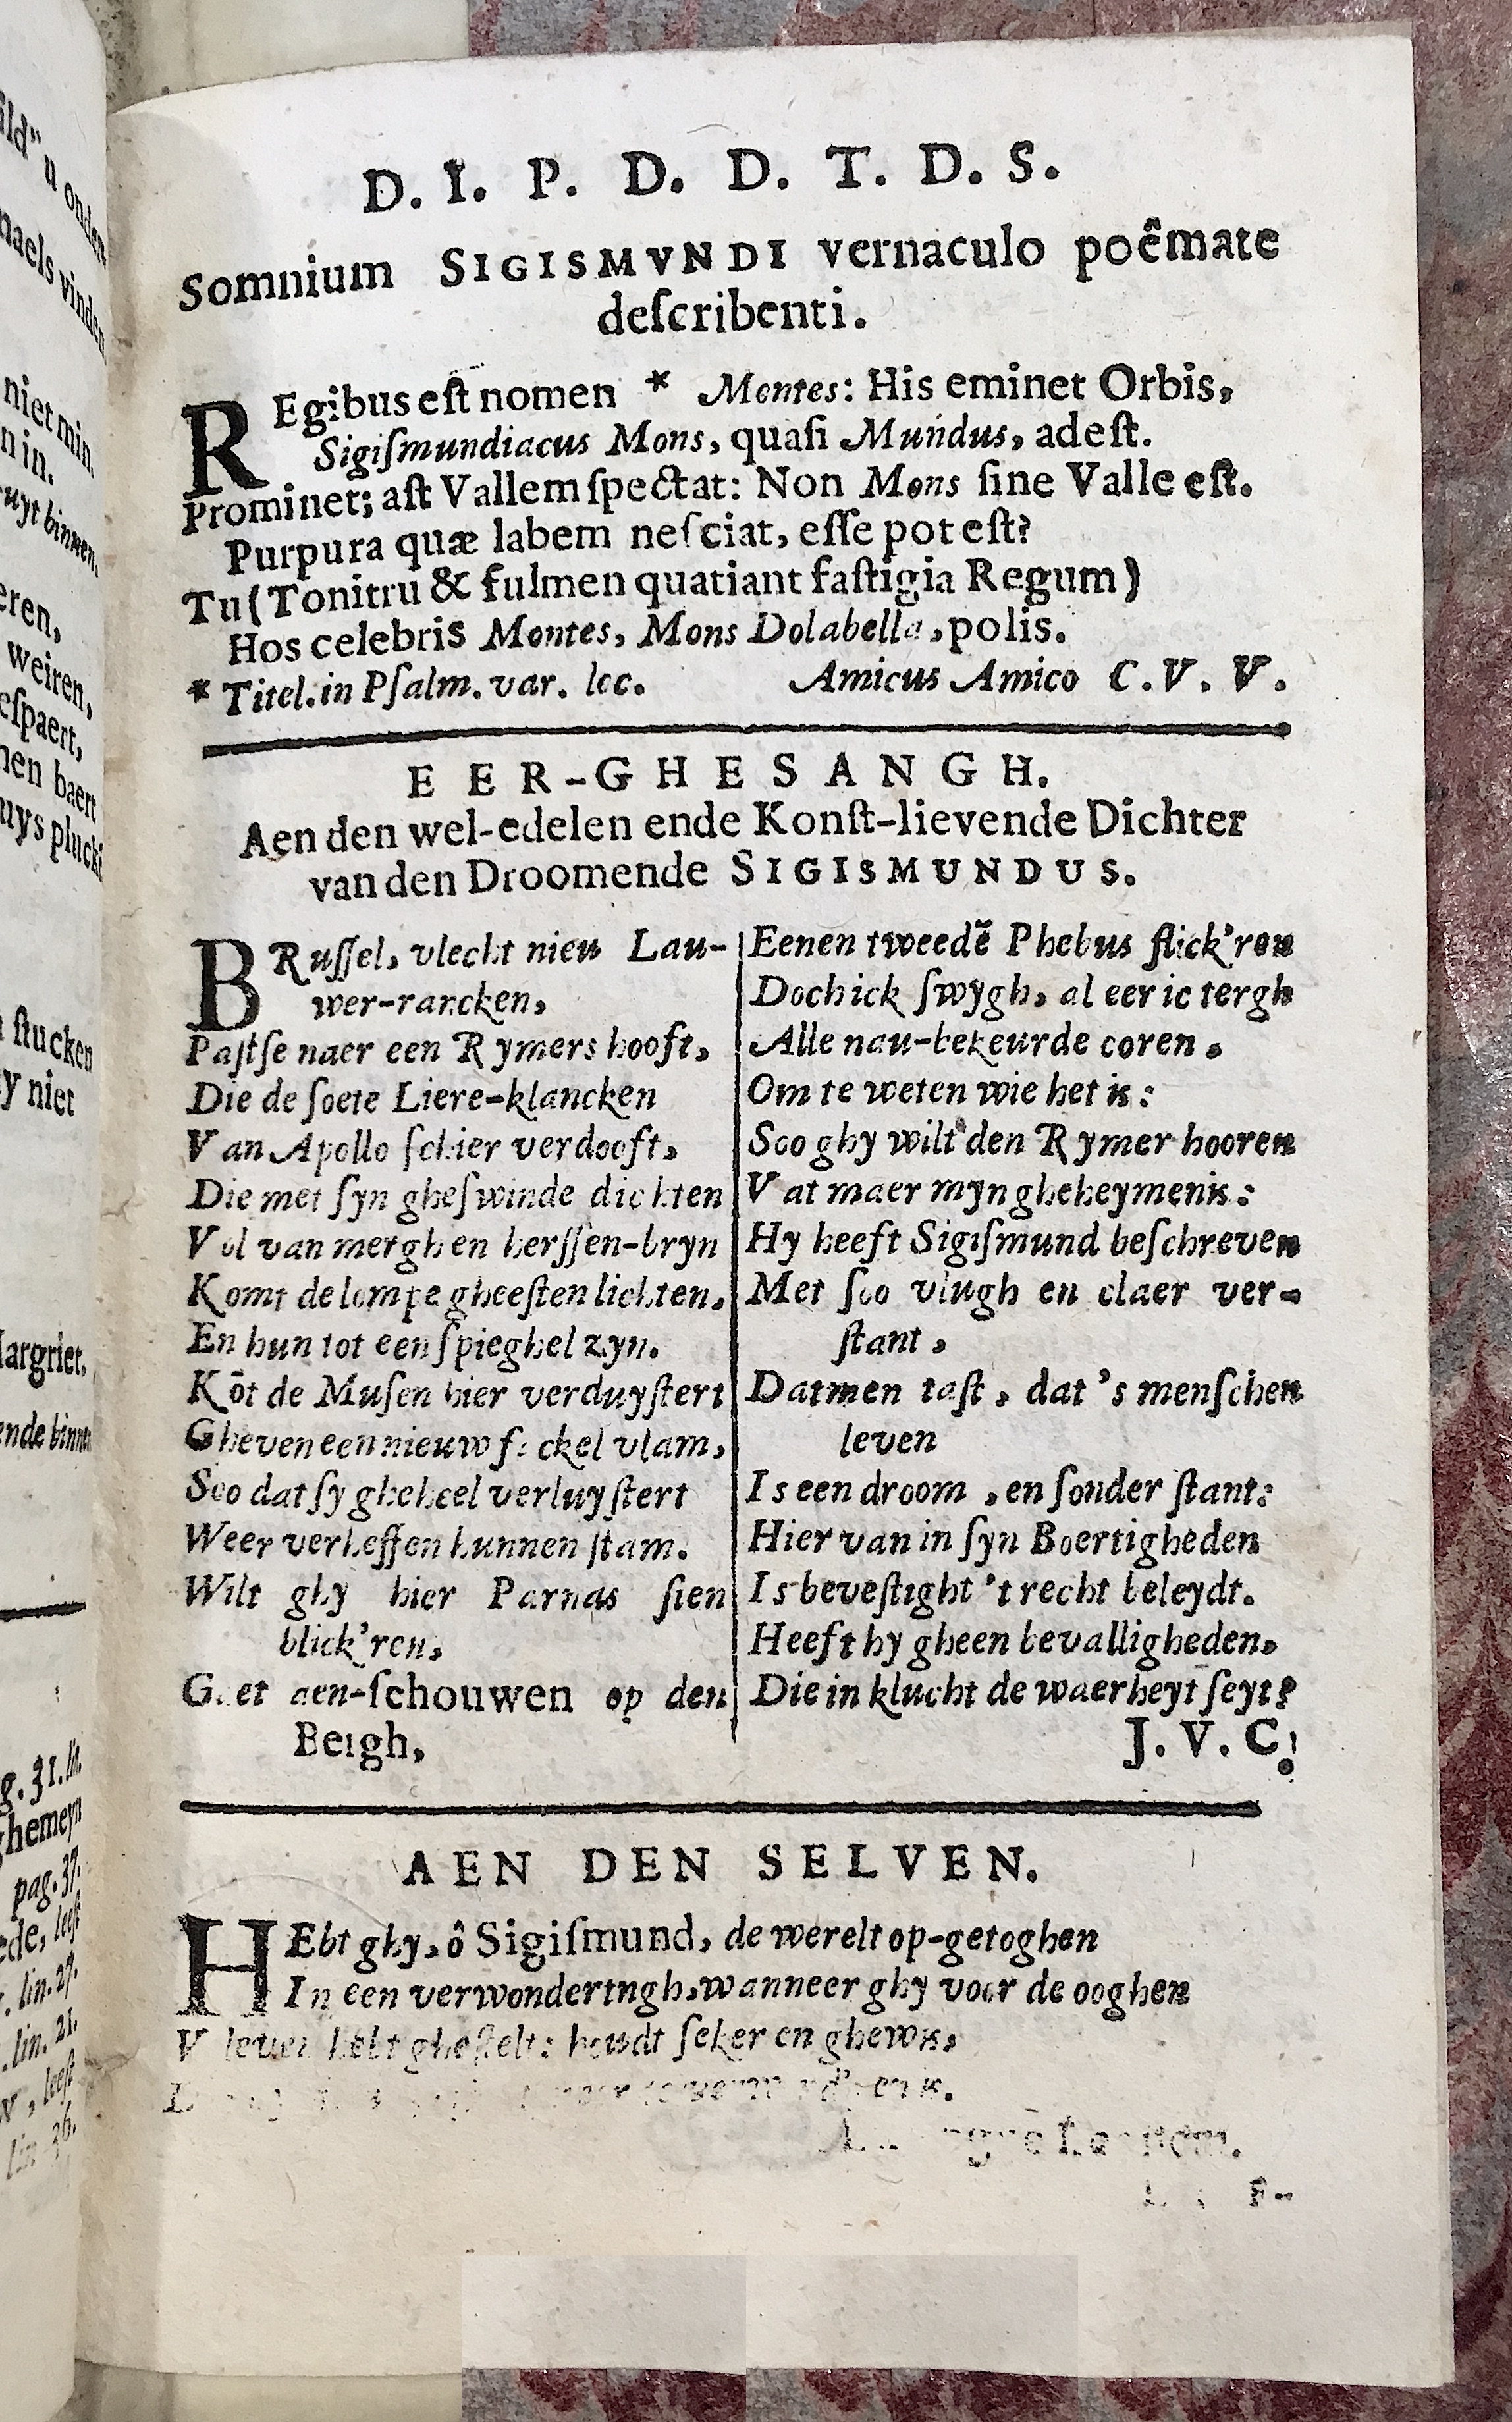 D. I. P. D. D. T. D. S.
Somnium SIGISMVNDI vernaculo poêmate
deſcribenti.
REgibus eſt nomen * Montes: His eminet Orbis,
Sigiſmundiacus Mons, quaſi Mundus, adeſt.
Prominet; aſt Vallem ſpectat: Non Mons ſine Valle eſt.
Purpura quæ labem neſciat, eſſe poteſt?
Tu (Tonitru & fulmen quatiant faſtigia Regum)
Hos celebris Montes, Mons Dolabella, polis.
* Titel. in Pſalm. var. lec. Amicus Amico C. V. V.
EER-GHESANGH.
Aen den wel-edelen ende Konſt-lievende Dichter
van den Droomende SIGISMUNDUS.
BRuſſel, vlecht nieu Lau-
wer-rancken,
Paſtſe naer een Rymers hooft,
Die de ſoete Liere-klancken
Van Apollo ſchier verdooft,
Die met ſyn gheſwinde dichten
Vol van mergh en herſſen-bryn
Komt de lompe gheeſten lichten,
En hun tot een ſpieghel zyn.
Kōt de Muſen hier verduyſtert
Gheven een nieuw fackel vlam,
Soo dat ſy gheheel verluyſtert
Weer verheffen hunnen ſtam.
Wilt ghy hier Parnas ſien
blick'ren,
Gaet aen-ſchouwen op den
Beigh,
Eenen tweedē Phebus flick'ren
Doch ick ſwygh, al eer ic tergh
Alle nau-bekeurde ooren,
Om te weten wie het is:
Soo ghy wilt den Rymer hooren
Vat maer myn gheheymenis:
Hy heeft Sigiſmund beſchreven
Met ſoo vlugh en claer ver-
ſtant,
Datmen taſt, dat 's menſchen
leven
Is een droom, en ſonder ſtant:
Hier van in ſyn Boertigheden
Is beveſtight 't recht beleydt.
Heeft hy gheen bevalligheden,
Die in klucht de waerheyt ſeyt?
J. V. C.
AEN DEN SELVEN.
HEbt ghy, ô Sigiſmund, de werelt op-getoghen
In een verwondertngh, wanneer ghy voor de ooghen
V leven hebt gheſtelt: houdt ſeker en ghewis,